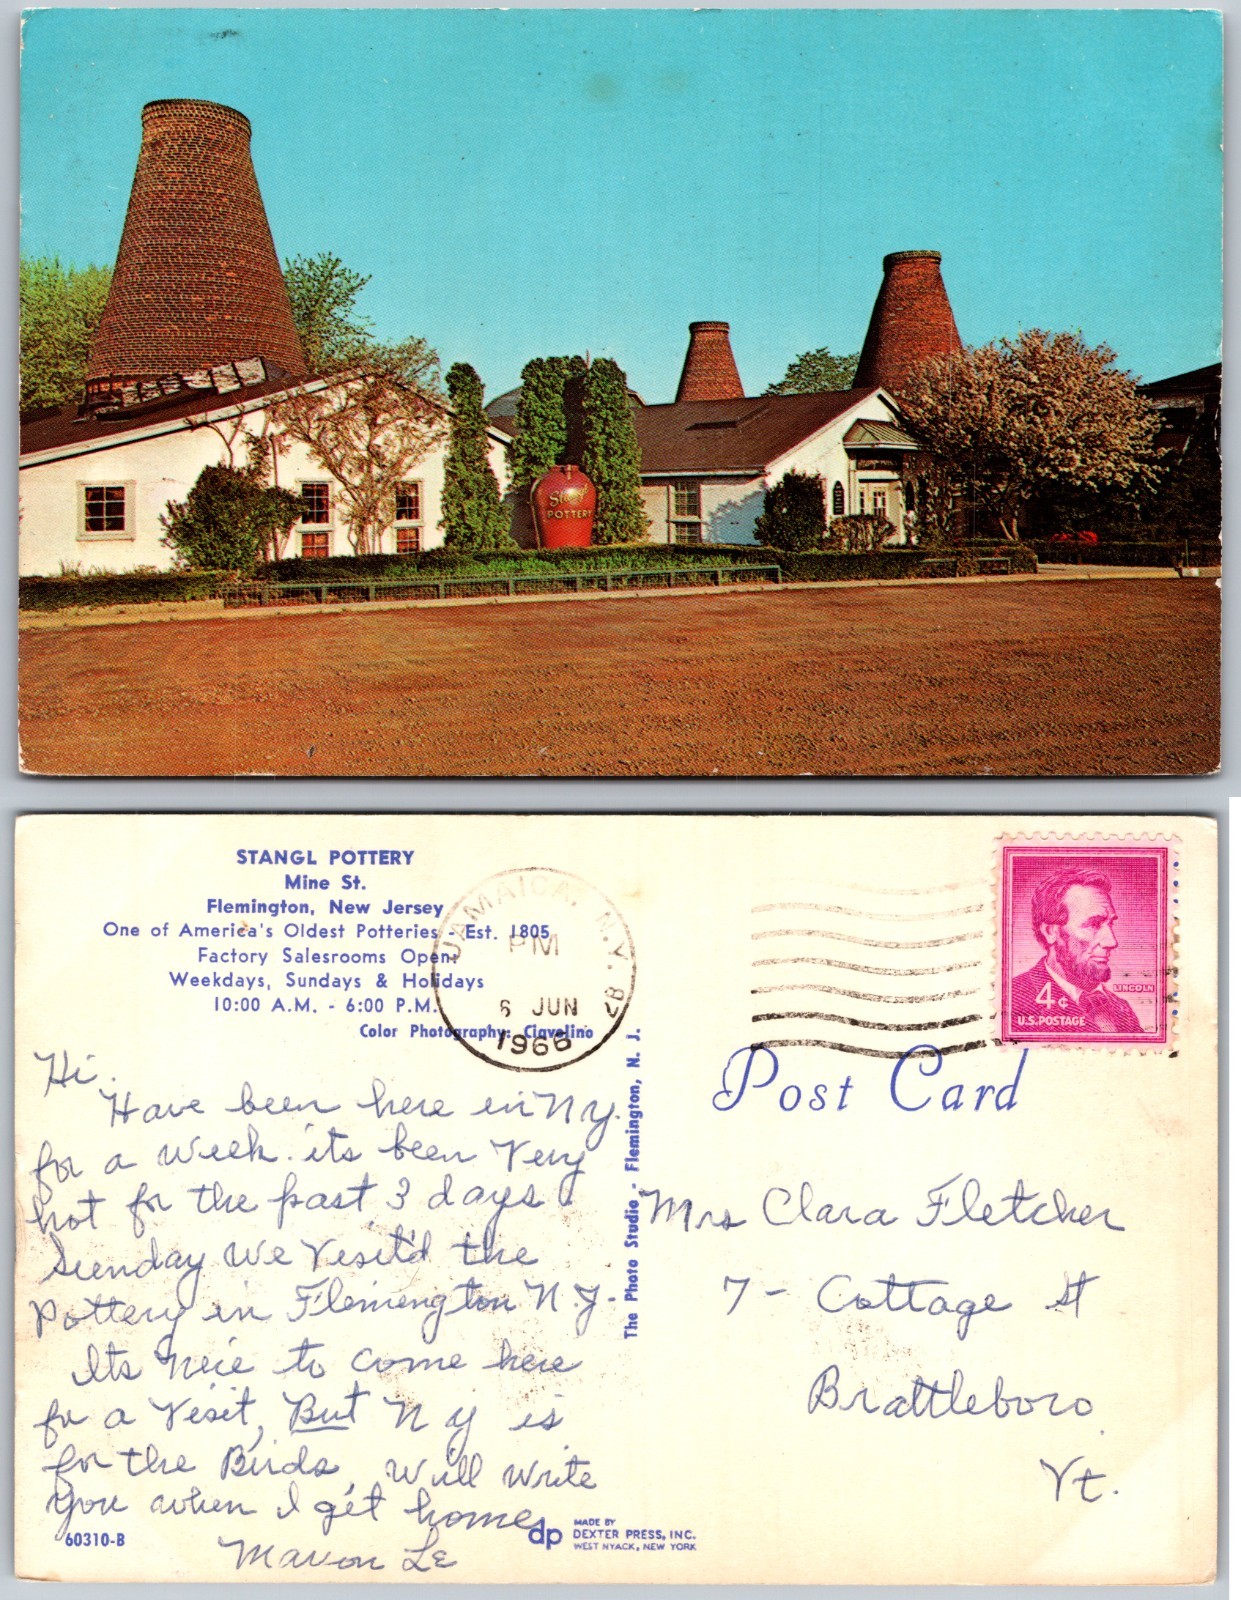 Stangl
POTTERY
STANGL POTTERY
Mine St.
Flemington, New Jersey
One of America's Oldest Potteries - Est. 1805
Factory Salesrooms Open:
Weekdays, Sundays & Holidays
10:00 A.M. - 6:00 P.M.
Color Photography: Ciavolino
JAMAICA, N.Y.
PM
6 JUN
1966
4¢
LINCOLN
U.S. POSTAGE
Post Card
Hi.
Have been here in N Y.
for a week. its been Very
hot for the past 3 days
Sunday We Visit'd the
Pottery in Flemington N.J.
Its Nice to come here
for a Visit, But N Y is
for the Birds. Will write
you when I get home
The Photo Studio - Flemington, N. J.
Mrs Clara Fletcher
7 - Cottage St
Brattleboro
Vt.
60310-B
dp
MADE BY
DEXTER PRESS, INC.
WEST NYACK, NEW YORK